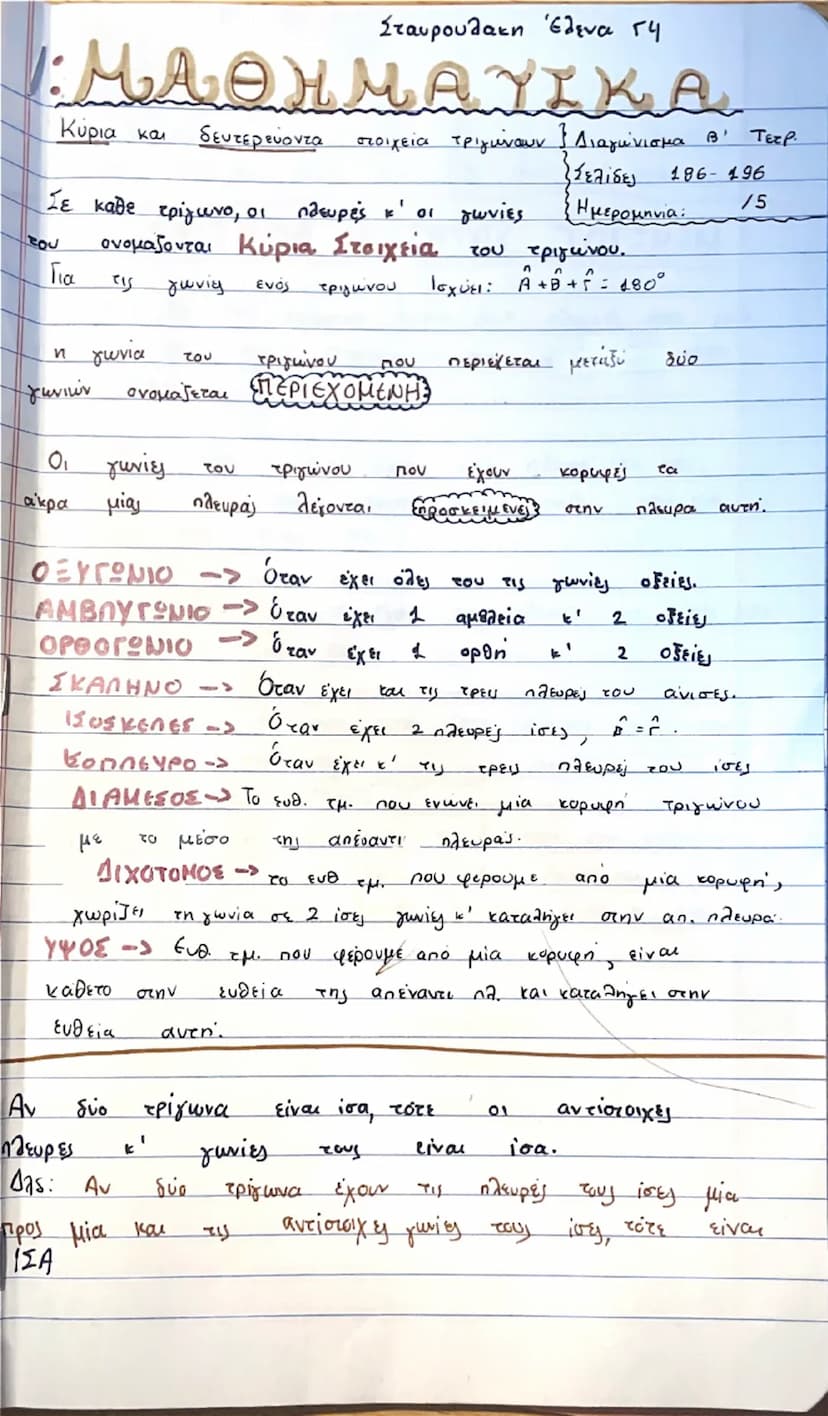 Σταυρουλακη Έλενα Γ4
ΜΑΘΗΜΑΤΙΚΑ
Κύρια και δευτερεύοντα στοιχεία τριγώνων } Διαγώνισμα Β' Τετρ.
Σελίδες 186-196
Ημερομηνία: /5
Σε καθε τρίγωνο, οι πλευρές κ' οι γωνίες
του ονομαζονται Κύρια Στοιχεία του τριγώνου.
Για τις γωνίες ενός τριγώνου Ισχύει: Â + B̂ + Γ̂ = 180°
η γωνία του τριγώνου που περιέχεται μεταξύ δύο
γωνιών ονομάζεται ΠΕΡΙΕΧΟΜΕΝΗ
Οι γωνίες του τριγώνου που έχουν κορυφές τα
άκρα μίας πλευράς λέγονται προσκείμενες στην πλευρα αυτή.
ΟΞΥΓΩΝΙΟ –> Όταν έχει όλες του τις γωνίες οξείες.
ΑΜΒΛΥΓΩΝΙΟ –> Όταν έχει 1 αμβλεία κ' 2 οξείες
ΟΡΘΟΓΩΝΙΟ –> Όταν έχει 1 ορθή κ' 2 οξείες
ΣΚΑΛΗΝΟ –> Όταν έχει και τις τρεις πλευρές του άνισες.
ΙΣΟΣΚΕΛΕΣ –> Όταν έχει 2 πλευρές ίσες, B̂ = Γ̂.
ΙΣΟΠΛΕΥΡΟ –> Όταν έχει κ' τις τρεις πλευρές του ίσες
ΔΙΑΜΕΣΟΣ –> Το ευθ. τμ. που ενώνει μία κορυφή τριγώνου
με το μέσο της απέναντι πλευράς.
ΔΙΧΟΤΟΜΟΣ –> το ευθ τμ. που φερουμε από μία κορυφή,
χωρίζει τη γωνία σε 2 ίσες γωνίες κ' καταλήγει στην απ. πλευρά.
ΥΨΟΣ –> Ευθ. τμ. που φέρουμε από μία κορυφή, είναι
κάθετο στην ευθεία της απέναντι πλ. και καταλήγει στην
ευθεία αυτή.
Αν δύο τρίγωνα είναι ίσα, τότε οι αντίστοιχες
πλευρές κ' γωνίες τους είναι ίσα.
Δλδ: Αν δύο τρίγωνα έχουν τις πλευρές τους ίσες μία
προς μία και τις αντίστοιχες γωνίες τους ίσες, τότε είναι
ΙΣΑ